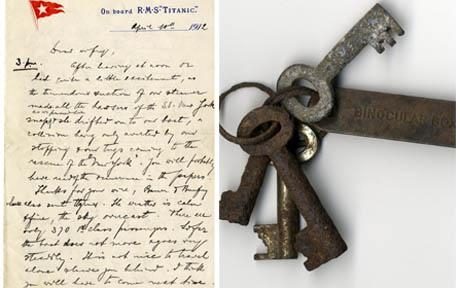 On board R.M.S "TITANIC."
April 10th 1912
Dear wifey,
3 p.m. After leaving at noon we
had quite a little excitement, as
the tremendous suction of our steamer
made all the hawsers of the SS. New York
snap & she drifted on to our boat, a
collision being only averted by our
stopping & our tugs coming to the
rescue of the "New York". You will probably
have read of the in the papers
Thanks for your wire,
class sent theirs. The weather is calm
& fine, the sky overcast. There are
only 370 1st class passengers. So far
the boat does not move & goes very
steadily. It is not nice to travel
alone & leave you behind. I think
you will have to come next time
BINOCULAR BO